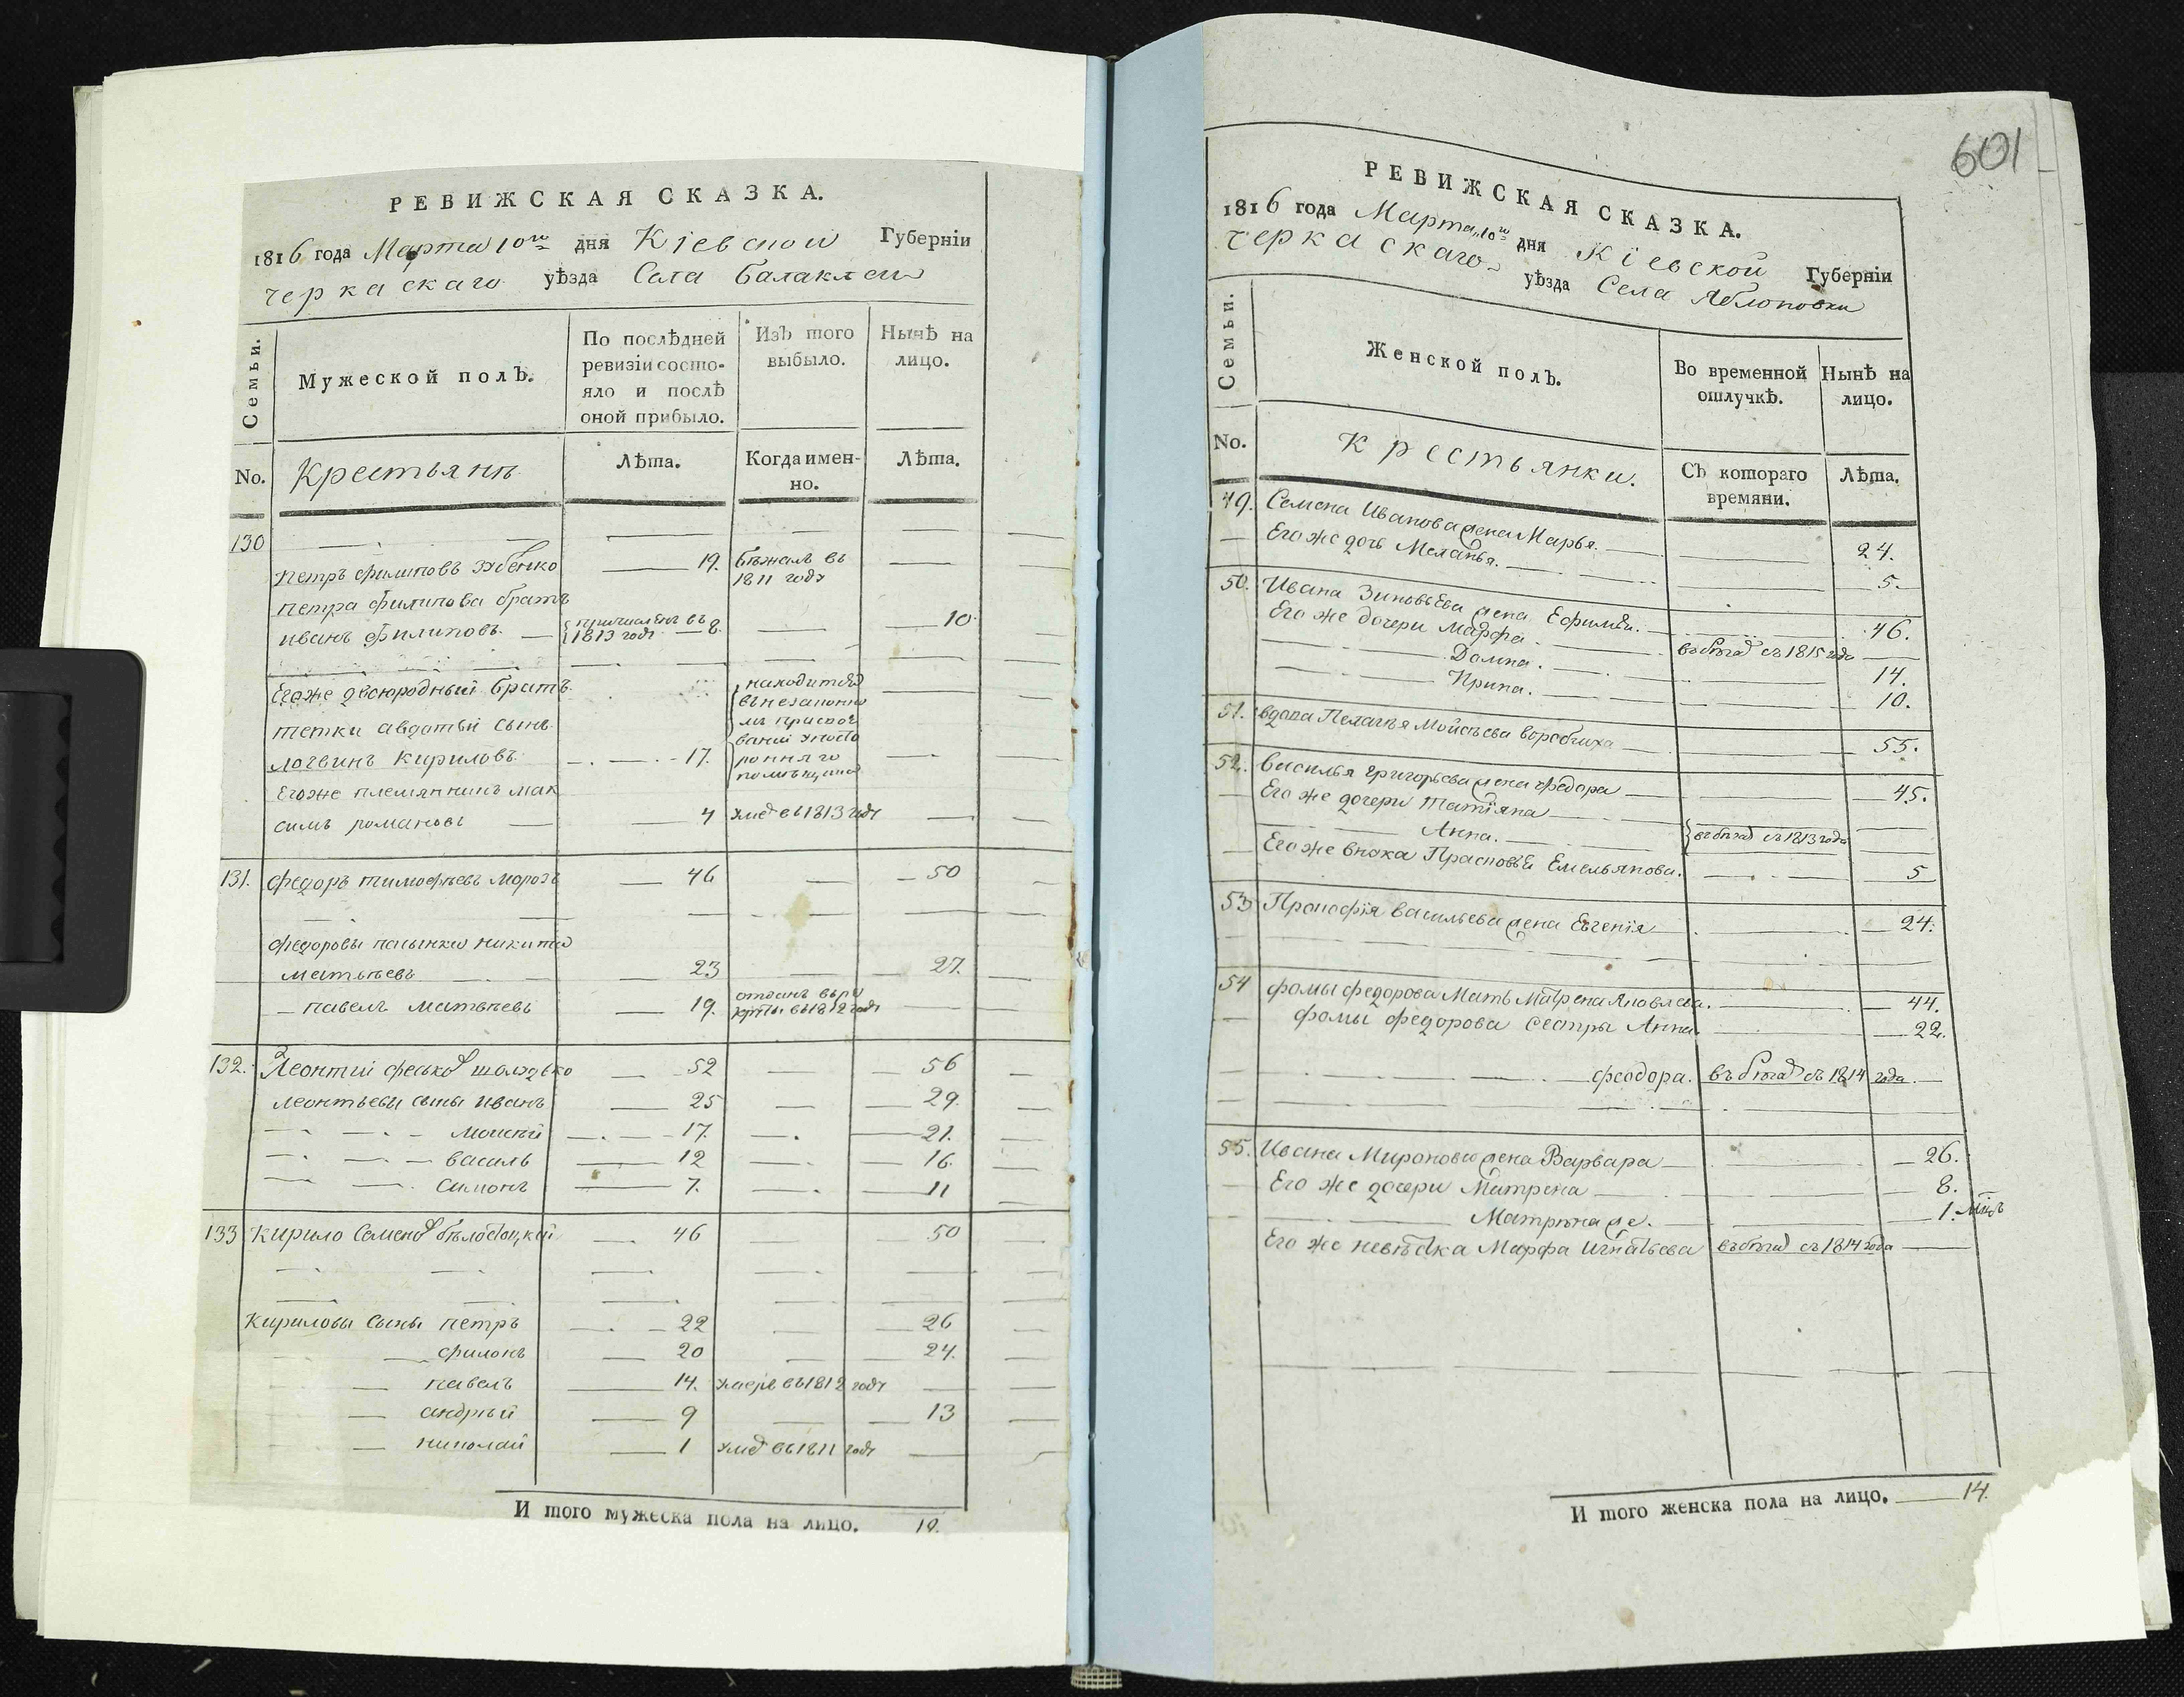 РЕВИЖСКАЯ СКАЗКА.
1816 года Марта 10го дня Кіевской Губерніи
черкаскаго уѣзда Села Балаклеи
Семьи.
Мужеской полЪ.
По послѣдней ревизіи состояло и послѣ оной прибыло.
ИзЪ того выбыло.
НынѣЪ на лицо.
No.
Крестьянѣ
Лѣта.
Когда именно.
Лѣта.
130
Петръ Филиповъ Зубенко 19. бѣжалъ въ 1811 году
Петра Филипова братъ
иванъ Филиповъ причисленъ въ 1813 году 8. 10
Егоже двоюродный братъ
тетки авдотьи сынъ
логвинъ Кириловъ 17. находится въ незаконномъ
помѣщика
Егоже племянникъ мак
симъ романовъ 4 умре въ 1813 году
131. Федоръ тимофѣевъ морозъ 46 50
Федоровы пасынки никита
матвѣевъ 23 27.
павелъ матвѣевъ 19. отданъ въ рекруты въ 1812 году
132. Леонтий феськов шолудко 52 56
леонтьевы сыны иванъ 25 29.
моисѣй 17. 21.
василь 12 16.
симонъ 7. 11
133 Кирило Семенов бѣлостоцкий 46 50
Кириловы сыны петръ 22 26
филонъ 20 24.
павелъ 14. умеръ въ 1812 году
андрѣй 9 13
николай 1 умре въ 1811 году
И того мужеска пола на лицо. 19.
601
РЕВИЖСКАЯ СКАЗКА.
1816 года Марта 10го дня Кіевской Губерніи
черкаскаго уѣзда Села Яблоновки
Семьи.
Женской полЪ.
Во временной отлучкѣ.
Нынѣ на лицо.
No.
Крестьянки.
СЪ котораго времяни.
Лѣта.
49. Семена Иванова жена Марья. 24.
Его же дочь Меланья. 5.
50. Ивана Зиновьева жена Ефимья. 46.
Его же дочери Марфа. въ бѣгах съ 1815 года
Домна. 14.
Ирина. 10.
51. вдова Пелагья Мойсѣева воробчиха 55.
52. Василья григорьева жена федора 45.
Его же дочери Татіяна
Анна. въ бѣгах съ 1813 года
Его же внука Прасковья Емельянова. 5
53 Прокофія васильева жена Евгенія 24.
54 фомы федорова Мать Матрена Яковлева. 44.
фомы федорова сестры Анна 22.
феодора. въ бѣгах съ 1814 года
55. Ивана Миронова жена Варвара 26.
Его же дочери Матрена 8.
Матрена же. 1. мѣц
Его же невѣстка Марфа Игнатьева въ бѣгах съ 1814 года
И того женска пола на лицо. 14.